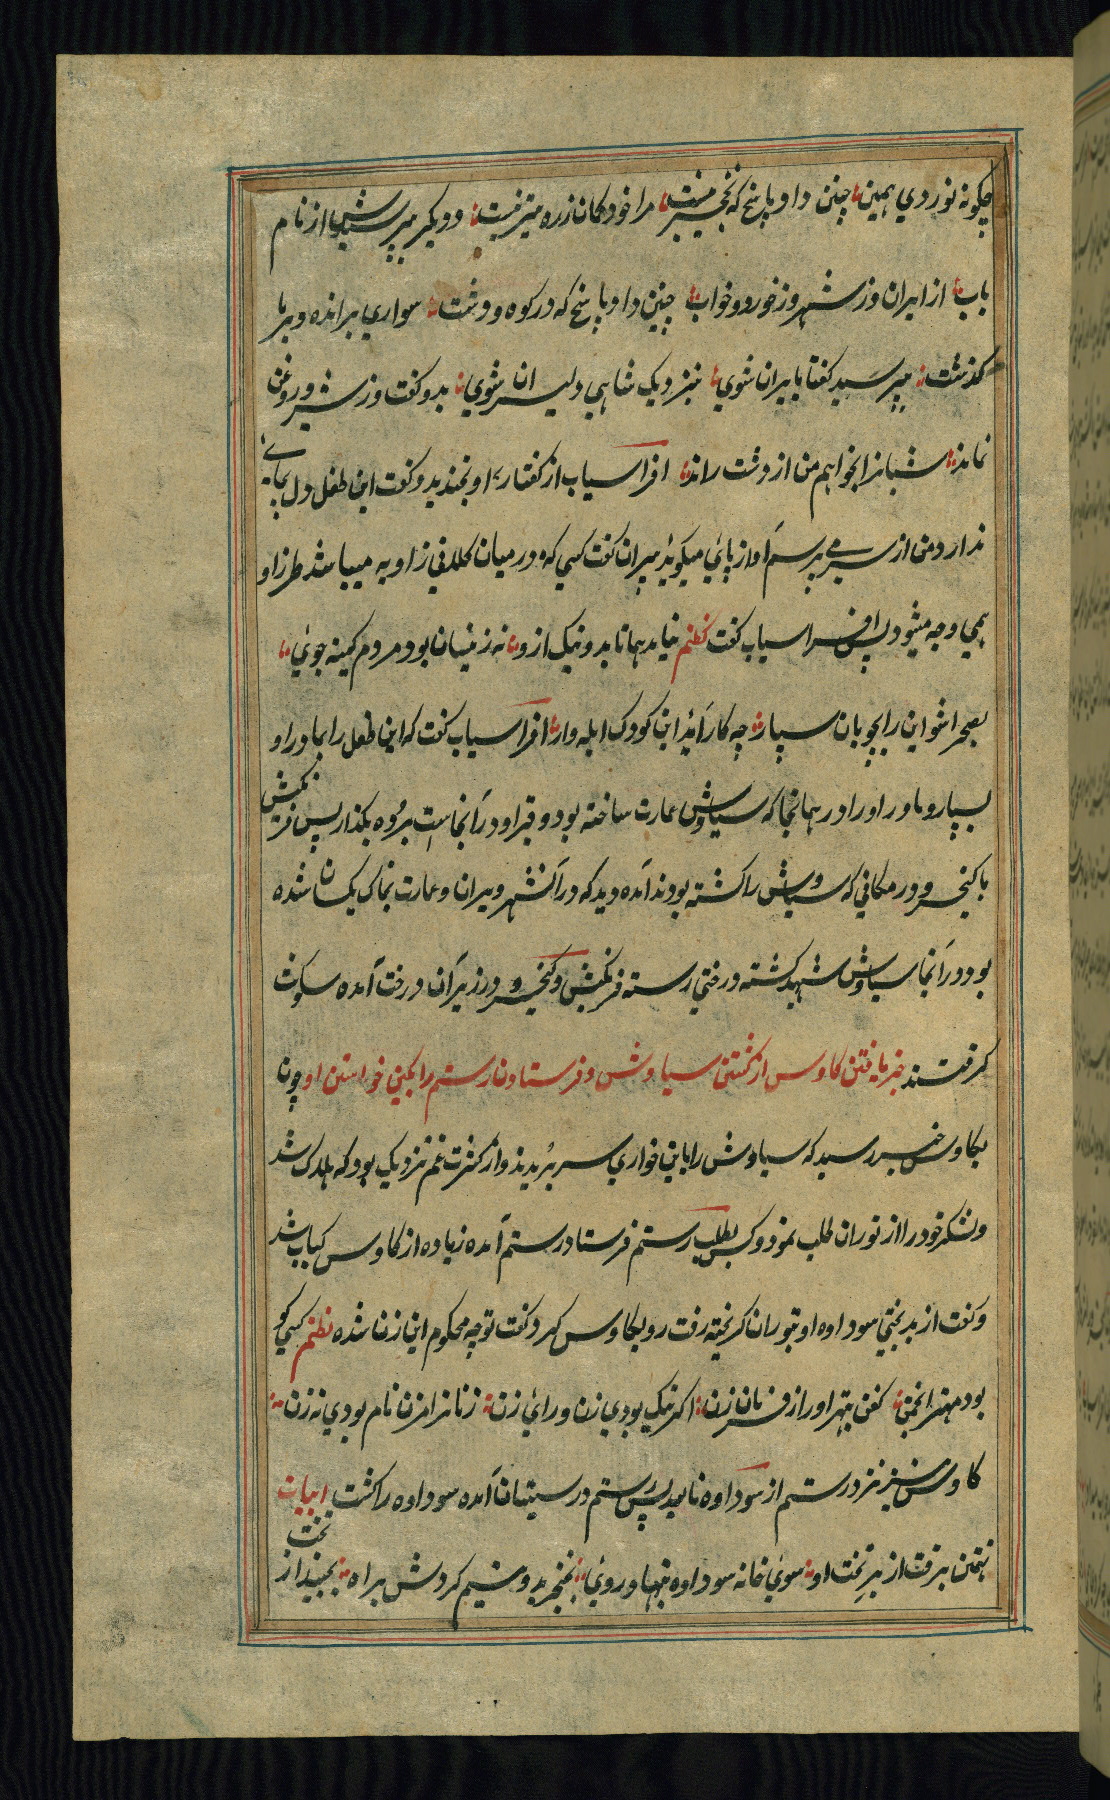 چکونه نوردی همین چنین داد پاسخ که نخجیر نیست مرا خود کمان زره تیر نیست دو دیکر بپرسیدش از نام
باب از ایران وز شهر وز خورد و خواب چنین داد پاسخ که در کوه و دشت سواری براند و برما
کذشت بپرسید کفتا بایران شوی بنزدیک شاهی دلیران شوی بدو کفت وز شیر و روغن
نماند شبانرا بخواهم من از دشت راند افراسیاب از کفتار او بخندید و کفت این طفل دل بجای
ندارد من از سر می پرسم او از پای میکوید پیران کفت کسی که در میان کله زاویه میباشد طرز او
همی وجه میشود پس افراسیاب کفت نظم نیاید همانا بد و نیک ازو نه زینسان بود مردم کینه جوی
بصحرا شو این را بچوپان سپار چه کار آید این کودک ابله وار افراسیاب کفت که این طفل را بمادر او
بسپار و مادر او را در همانجا که سیاوش عمارت ساخته بود و قبر او در آنجاست برده بکذار پس فرنکیش
با کیخسرو در مکانی که سیاوش را کشته بودند آمده دید که در آنشهر ویران و عمارت بخاک یکسان شده
بود و در آنجا سیاوش شهید کشته درختی رسته فرنکیش و کیخسرو در زیر آن درخت آمده سکونت
کرفتند خبر یافتن کاوس از کشتن سیاوش و فرستادن رستم را بکین خواستن او چون
بکاوس خبر رسید که سیاوش را باین خواری سر بریدند و از کثرت غم نزدیک بود که هلاک شد
و لشکر خود را از توران طلب نمود و کس بطلب رستم فرستاد رستم آمده زیاده از کاوس کباب شد
و کفت از بدبختی سوداوه او بتوران کریخته رفت رو بکاوس کرد و کفت تو چه محکوم این زن شده نظم کسی کو
بود مهتر انجمن کفن بهتر او را از فرمان زن اکر نیک بودی زن و رای زن زنانرا مزن نام بودی نه زن
کاوس نیز نزد رستم از سوداوه نالید پس رستم در سیستان آمده سوداوه را کشت ابیات
تهمتن برفت از بر تخت او سوی خانه سوداوه بنهاد روی بخنجر بدو نیم کردش براه بجنبید از تخت